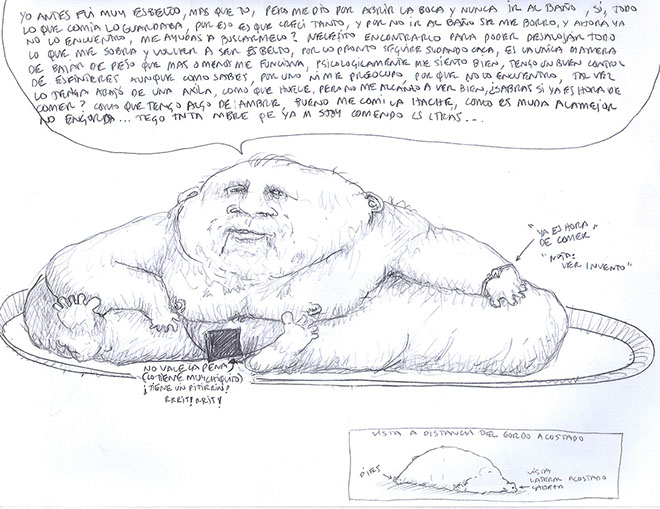 YO ANTES FUI MUY ESBELTO, MAS QUE TU, PERO ME DIO POR ABRIR LA BOCA Y NUNCA IR AL BAÑO, SI, TODO
LO QUE COMIA LO GUARDABA, POR ESO ES QUE CRECI TANTO, Y POR NO IR AL BAÑO SE ME BORRO, Y AHORA YA
NO LO ENCUENTRO, ME AYUDAS A BUSCARMELO? NECESITO ENCONTRARLO PARA PODER DESALOJAR TODO
LO QUE ME SOBRA Y VOLVER A SER ESBELTO, POR LO PRONTO SEGUIRE SUDANDO CACA, ES LA UNICA MANERA
DE BAJAR DE PESO QUE MAS O MENOS ME FUNCIONA, PSICOLOGICAMENTE ME SIENTO BIEN, TENGO UN BUEN CONTROL
DE ESFINTERES AUNQUE COMO SABES, POR UNO NI ME PREOCUPO, POR QUE NO LO ENCUENTRO, TAL VEZ
LO TENGA ABAJO DE UNA AXILA, COMO QUE HUELE, PERO NO ME ALCANZO A VER BIEN, ¿SABRAS SI YA ES HORA DE
COMER? COMO QUE TENGO ALGO DE AMBRE, BUENO ME COMI LA HACHE, COMO ES MUDA ALAMEJOR
NO ENGORDA... TEGO TNTA MBRE PE YA M STOY COMENDO LS LTRAS...
"YA ES HORA
DE COMER"
"NOTA:
VER INVENTO"
NO VALE LA PENA
(LO TIENE MUY CHIQUITO)
¡TIENE UN PITIRRIN!
RRRIT! RRIT!
VISTA A DISTANCIA DEL GORDO ACOSTADO
PIES
VISTA
LATERAL ACOSTADO
CABEZA